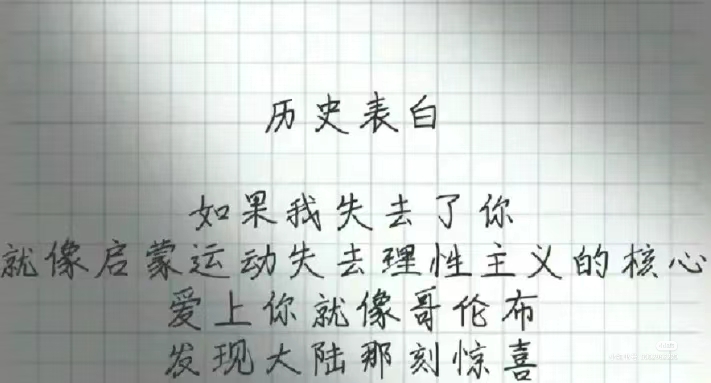 历史表白
如果我失去了你
就像启蒙运动失去理性主义的核心
爱上你就像哥伦布
发现大陆那刻惊喜